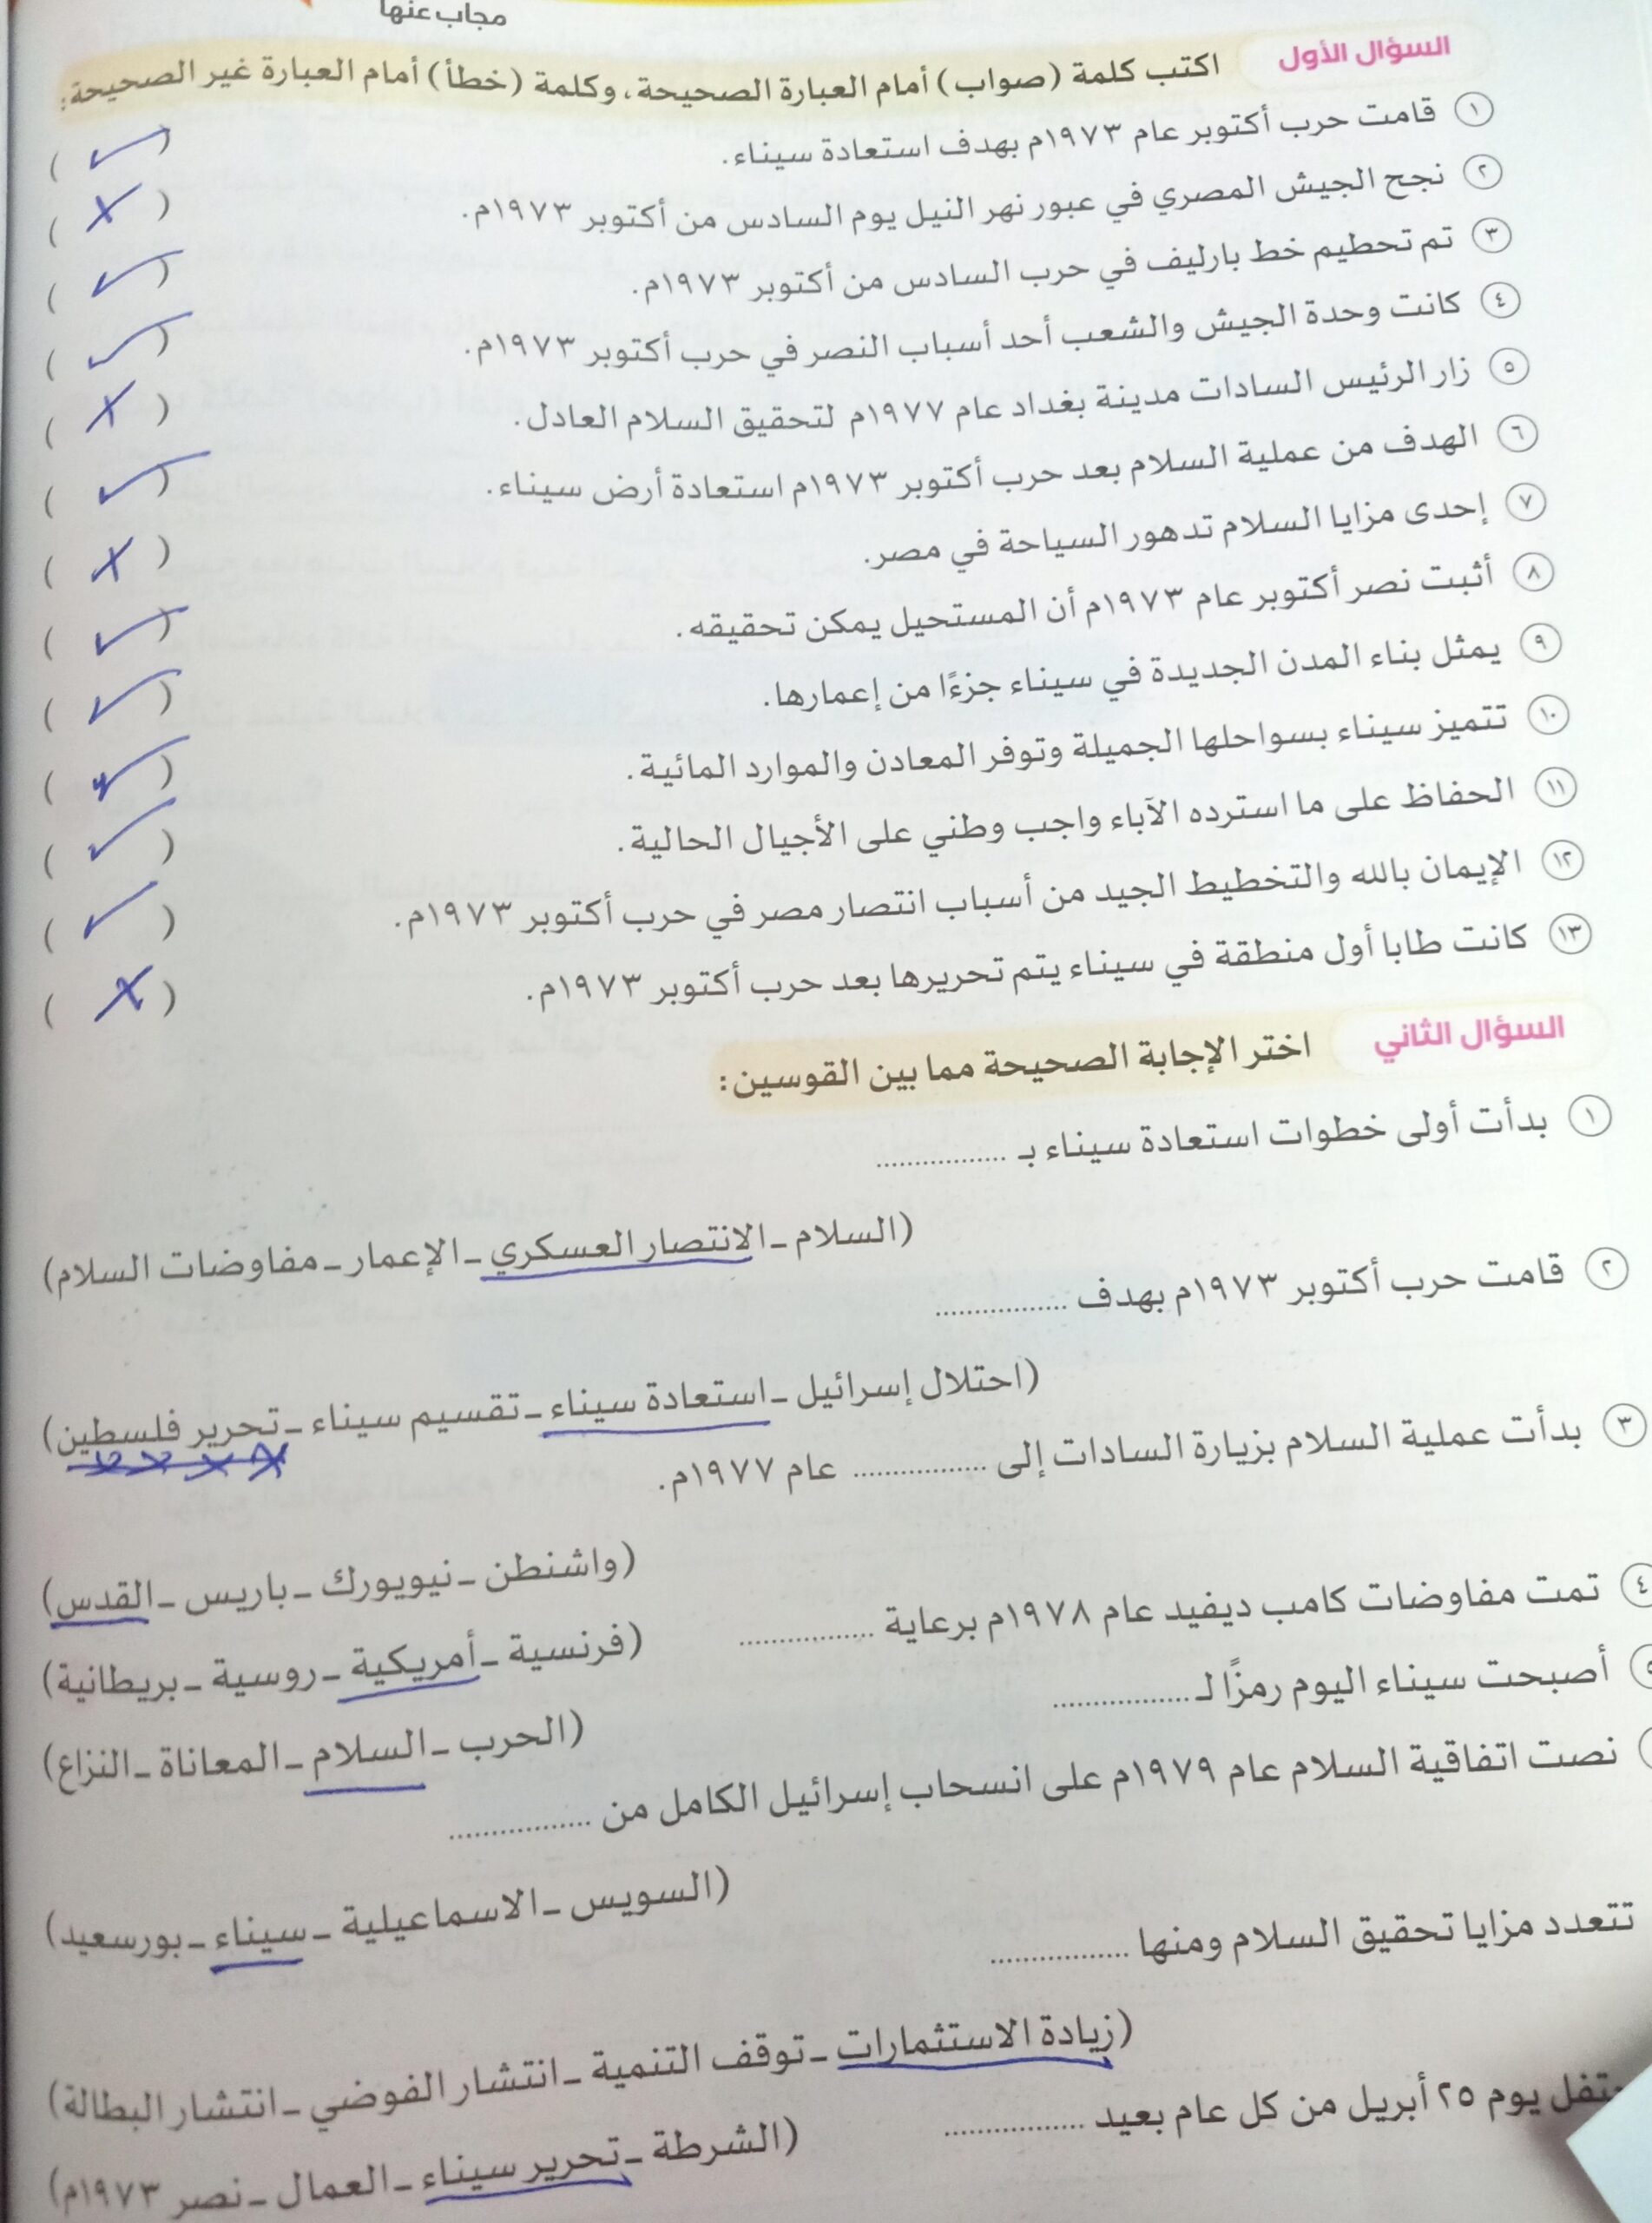 مجاب عنها
السؤال الأول اكتب كلمة (صواب) أمام العبارة الصحيحة، وكلمة (خطأ) أمام العبارة غير الصحيحة:
١ قامت حرب أكتوبر عام ١٩٧٣م بهدف استعادة سيناء. ( ✓ )
٢ نجح الجيش المصري في عبور نهر النيل يوم السادس من أكتوبر ١٩٧٣م. ( X )
٣ تم تحطيم خط بارليف في حرب السادس من أكتوبر ١٩٧٣م. ( ✓ )
٤ كانت وحدة الجيش والشعب أحد أسباب النصر في حرب أكتوبر ١٩٧٣م. ( ✓ )
٥ زار الرئيس السادات مدينة بغداد عام ١٩٧٧م لتحقيق السلام العادل. ( X )
٦ الهدف من عملية السلام بعد حرب أكتوبر ١٩٧٣م استعادة أرض سيناء. ( ✓ )
٧ إحدى مزايا السلام تدهور السياحة في مصر. ( X )
٨ أثبت نصر أكتوبر عام ١٩٧٣م أن المستحيل يمكن تحقيقه. ( ✓ )
٩ يمثل بناء المدن الجديدة في سيناء جزءًا من إعمارها. ( ✓ )
١٠ تتميز سيناء بسواحلها الجميلة وتوفر المعادن والموارد المائية. ( ✓ )
١١ الحفاظ على ما استرده الآباء واجب وطني على الأجيال الحالية. ( ✓ )
١٢ الإيمان بالله والتخطيط الجيد من أسباب انتصار مصر في حرب أكتوبر ١٩٧٣م. ( ✓ )
١٣ كانت طابا أول منطقة في سيناء يتم تحريرها بعد حرب أكتوبر ١٩٧٣م. ( X )
السؤال الثاني اختر الإجابة الصحيحة مما بين القوسين:
١ بدأت أولى خطوات استعادة سيناء بـ ................
(السلام - الانتصار العسكري - الإعمار - مفاوضات السلام)
٢ قامت حرب أكتوبر ١٩٧٣م بهدف ................
(احتلال إسرائيل - استعادة سيناء - تقسيم سيناء - تحرير فلسطين)
٣ بدأت عملية السلام بزيارة السادات إلى ................ عام ١٩٧٧م.
(واشنطن - نيويورك - باريس - القدس)
٤ تمت مفاوضات كامب ديفيد عام ١٩٧٨م برعاية ................
(فرنسية - أمريكية - روسية - بريطانية)
٥ أصبحت سيناء اليوم رمزًا لـ ................
(الحرب - السلام - المعاناة - النزاع)
نصت اتفاقية السلام عام ١٩٧٩م على انسحاب إسرائيل الكامل من ................
(السويس - الاسماعيلية - سيناء - بورسعيد)
تتعدد مزايا تحقيق السلام ومنها ................
(زيادة الاستثمارات - توقف التنمية - انتشار الفوضي - انتشار البطالة)
يوم ٢٥ أبريل من كل عام بعيد ................
(الشرطة - تحرير سيناء - العمال - نصر ١٩٧٣م)